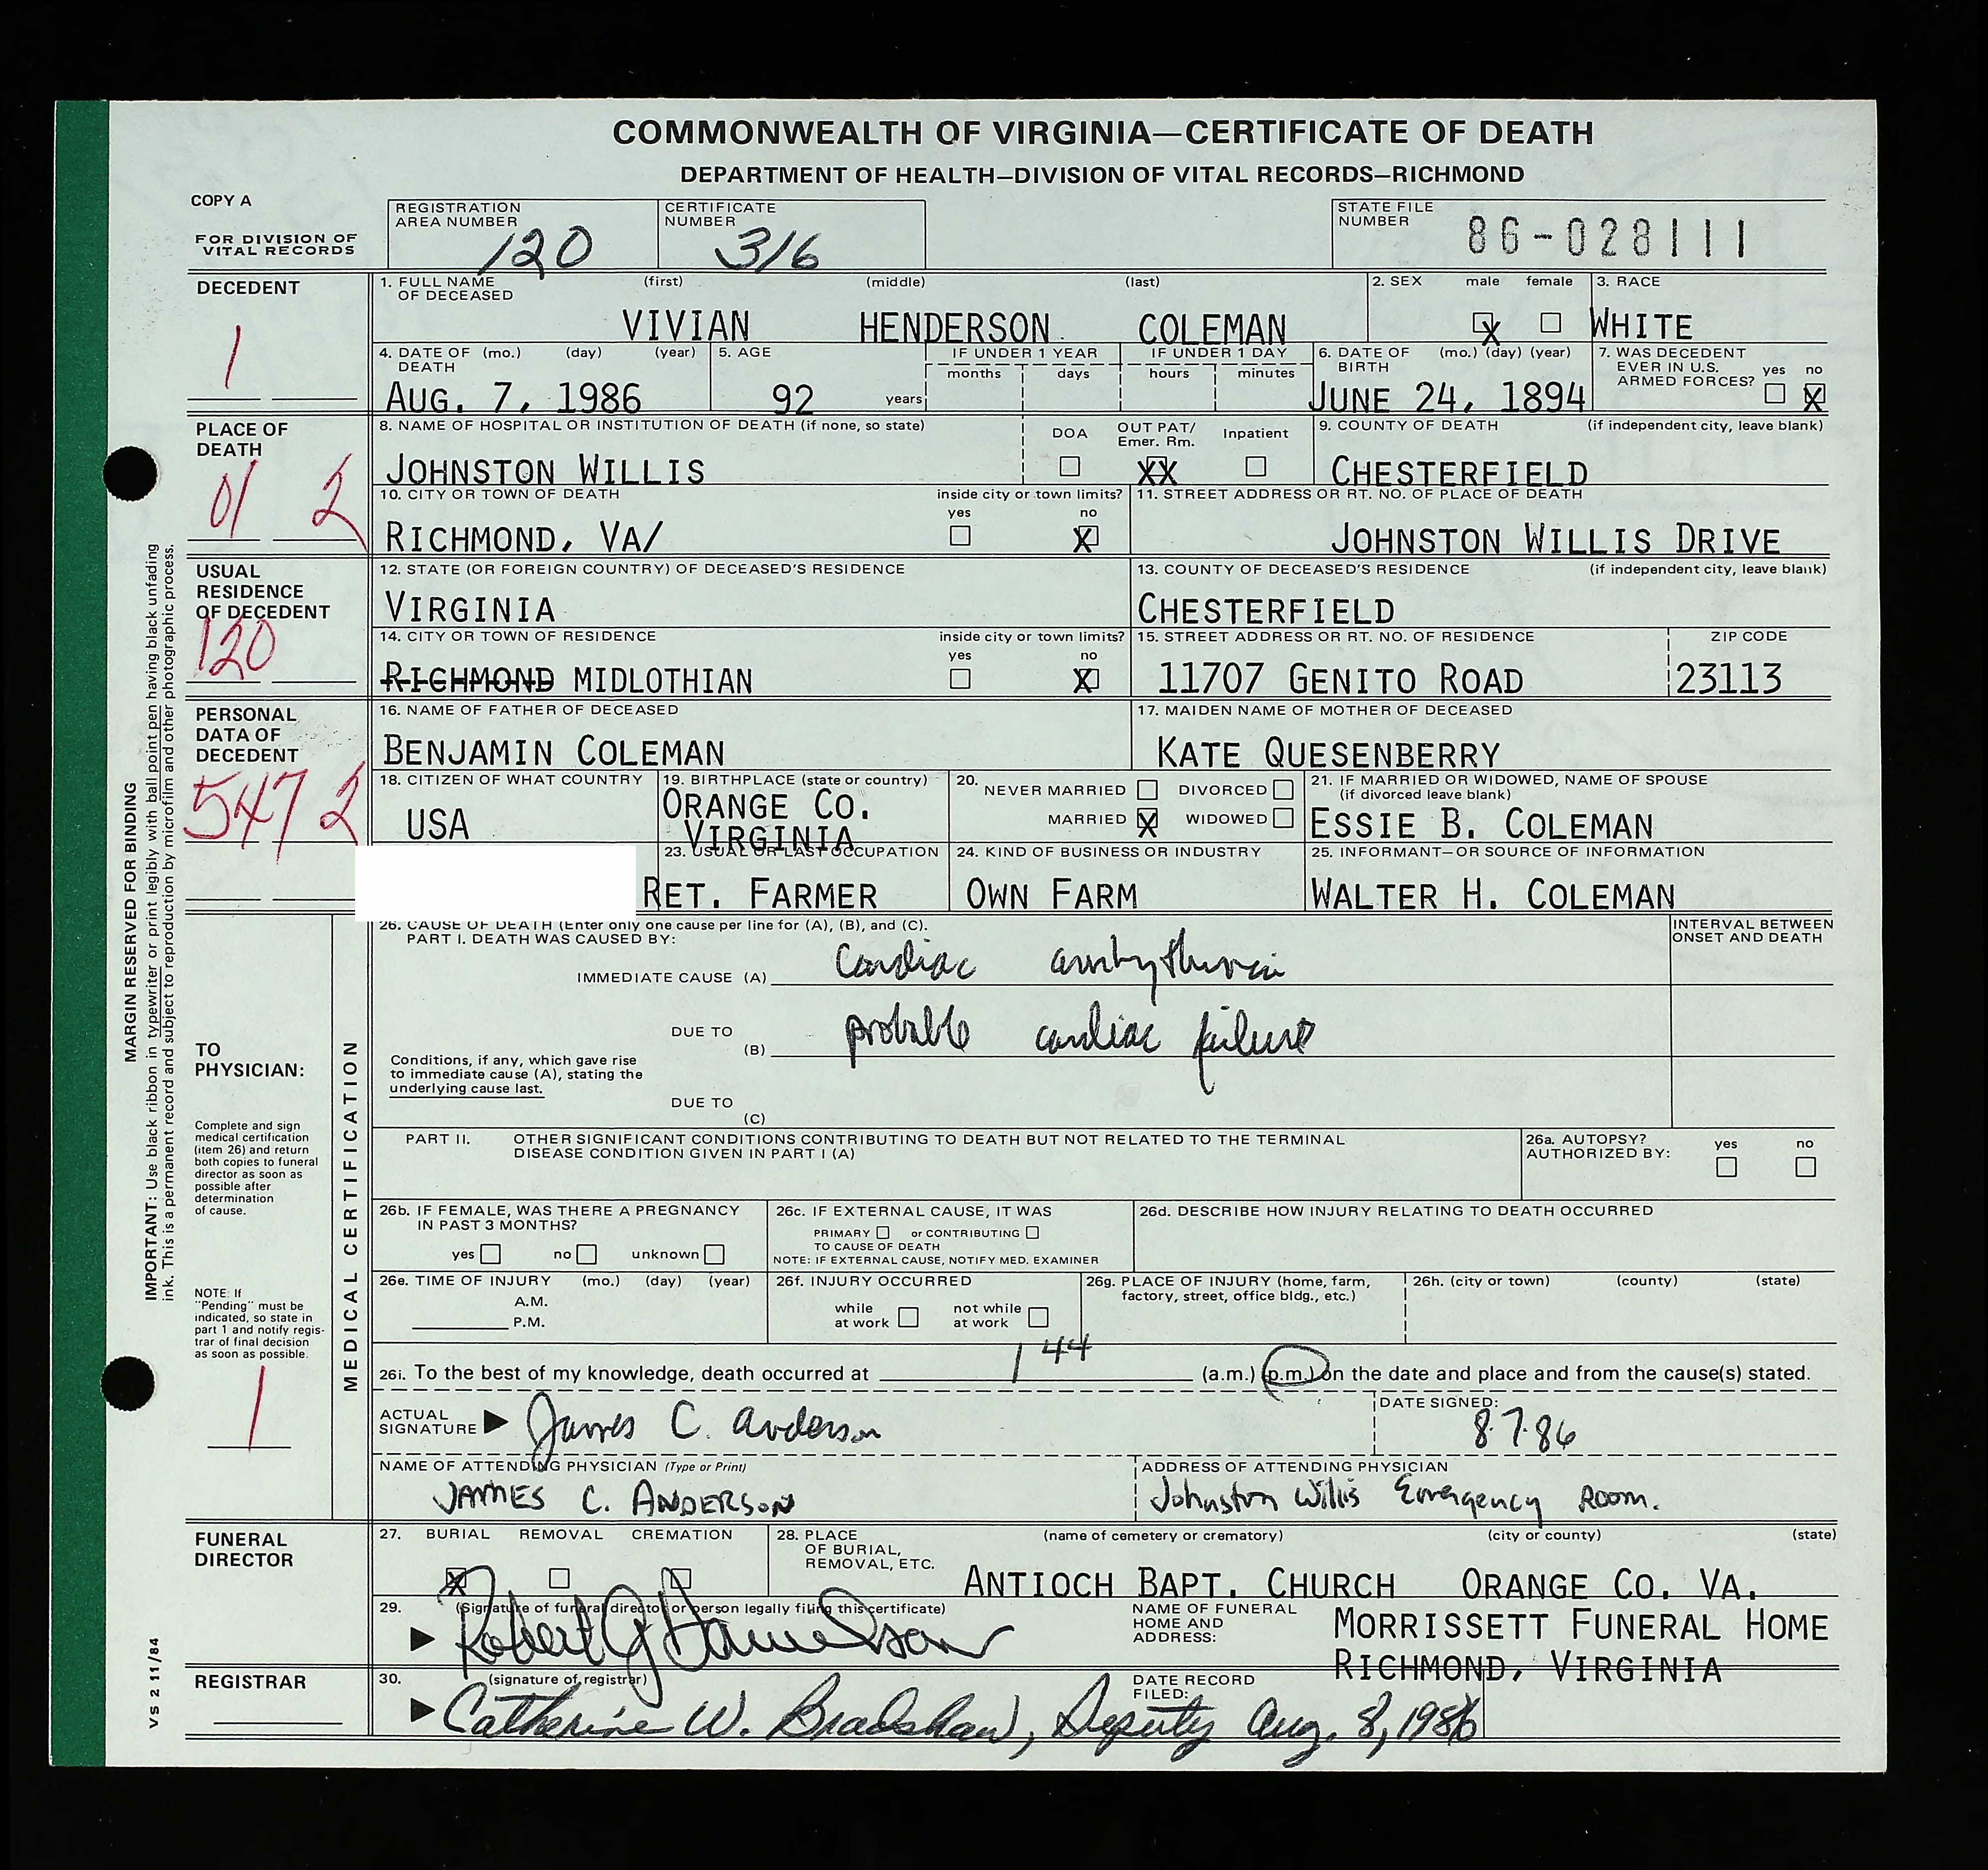 COMMONWEALTH OF VIRGINIA—CERTIFICATE OF DEATH
DEPARTMENT OF HEALTH—DIVISION OF VITAL RECORDS—RICHMOND
COPY A
FOR DIVISION OF
VITAL RECORDS
REGISTRATION
AREA NUMBER
120
CERTIFICATE
NUMBER
316
STATE FILE
NUMBER
86-028111
DECEDENT
1
1. FULL NAME (first) (middle) (last)
OF DECEASED
VIVIAN HENDERSON COLEMAN
2. SEX male female
X
3. RACE
WHITE
4. DATE OF (mo.) (day) (year)
DEATH
AUG. 7, 1986
5. AGE
92 years
IF UNDER 1 YEAR
months days
IF UNDER 1 DAY
hours minutes
6. DATE OF (mo.) (day) (year)
BIRTH
JUNE 24, 1894
7. WAS DECEDENT
EVER IN U.S. yes no
ARMED FORCES?
X
PLACE OF
DEATH
01 2
8. NAME OF HOSPITAL OR INSTITUTION OF DEATH (if none, so state)
JOHNSTON WILLIS
DOA OUT PAT/ Inpatient
Emer. Rm.
XX
9. COUNTY OF DEATH (if independent city, leave blank)
CHESTERFIELD
10. CITY OR TOWN OF DEATH inside city or town limits?
yes no
RICHMOND, VA/ X
11. STREET ADDRESS OR RT. NO. OF PLACE OF DEATH
JOHNSTON WILLIS DRIVE
USUAL
RESIDENCE
OF DECEDENT
120
12. STATE (OR FOREIGN COUNTRY) OF DECEASED'S RESIDENCE
VIRGINIA
13. COUNTY OF DECEASED'S RESIDENCE (if independent city, leave blank)
CHESTERFIELD
14. CITY OR TOWN OF RESIDENCE inside city or town limits?
yes no
RICHMOND MIDLOTHIAN X
15. STREET ADDRESS OR RT. NO. OF RESIDENCE ZIP CODE
11707 GENITO ROAD 23113
PERSONAL
DATA OF
DECEDENT
547 2
16. NAME OF FATHER OF DECEASED
BENJAMIN COLEMAN
17. MAIDEN NAME OF MOTHER OF DECEASED
KATE QUESENBERRY
18. CITIZEN OF WHAT COUNTRY
USA
19. BIRTHPLACE (state or country)
ORANGE CO.
VIRGINIA
20.
NEVER MARRIED DIVORCED
MARRIED X WIDOWED
21. IF MARRIED OR WIDOWED, NAME OF SPOUSE
(if divorced leave blank)
ESSIE B. COLEMAN
23. USUAL OR LAST OCCUPATION
RET. FARMER
24. KIND OF BUSINESS OR INDUSTRY
OWN FARM
25. INFORMANT—OR SOURCE OF INFORMATION
WALTER H. COLEMAN
MARGIN RESERVED FOR BINDING
IMPORTANT: Use black ribbon in typewriter or print legibly with ball point pen having black unfading
ink. This is a permanent record and subject to reproduction by microfilm and other photographic process.
TO
PHYSICIAN:
Complete and sign
medical certification
(item 26) and return
both copies to funeral
director as soon as
possible after
determination
of cause.
NOTE: If
"Pending" must be
indicated, so state in
part 1 and notify regis-
trar of final decision
as soon as possible.
1
MEDICAL CERTIFICATION
26. CAUSE OF DEATH (Enter only one cause per line for (A), (B), and (C).
PART I. DEATH WAS CAUSED BY:
INTERVAL BETWEEN
ONSET AND DEATH
IMMEDIATE CAUSE (A) Cardiac arrhythmia
DUE TO
(B) probable cardiac failure
Conditions, if any, which gave rise
to immediate cause (A), stating the
underlying cause last.
DUE TO
(C)
PART II. OTHER SIGNIFICANT CONDITIONS CONTRIBUTING TO DEATH BUT NOT RELATED TO THE TERMINAL
DISEASE CONDITION GIVEN IN PART I (A)
26a. AUTOPSY? yes no
AUTHORIZED BY:
26b. IF FEMALE, WAS THERE A PREGNANCY
IN PAST 3 MONTHS?
yes no unknown
26c. IF EXTERNAL CAUSE, IT WAS
PRIMARY or CONTRIBUTING
TO CAUSE OF DEATH
NOTE: IF EXTERNAL CAUSE, NOTIFY MED. EXAMINER
26d. DESCRIBE HOW INJURY RELATING TO DEATH OCCURRED
26e. TIME OF INJURY (mo.) (day) (year)
A.M.
P.M.
26f. INJURY OCCURRED
while not while
at work at work
26g. PLACE OF INJURY (home, farm,
factory, street, office bldg., etc.)
26h. (city or town) (county) (state)
26i. To the best of my knowledge, death occurred at 1 44 (a.m.) (p.m.) on the date and place and from the cause(s) stated.
ACTUAL
SIGNATURE James C. Anderson
DATE SIGNED:
8.7.86
NAME OF ATTENDING PHYSICIAN (Type or Print)
JAMES C. ANDERSON
ADDRESS OF ATTENDING PHYSICIAN
Johnston Willis Emergency Room.
FUNERAL
DIRECTOR
27. BURIAL REMOVAL CREMATION
X
28. PLACE (name of cemetery or crematory) (city or county) (state)
OF BURIAL,
REMOVAL, ETC.
ANTIOCH BAPT. CHURCH ORANGE CO. VA.
29. (Signature of funeral director or person legally filing this certificate)
Robert G
NAME OF FUNERAL
HOME AND
ADDRESS:
MORRISSETT FUNERAL HOME
RICHMOND, VIRGINIA
REGISTRAR
30. (signature of registrar)
Catherine W. Bradshaw, Deputy
DATE RECORD
FILED:
Aug. 8, 1986
VS 2 11/84